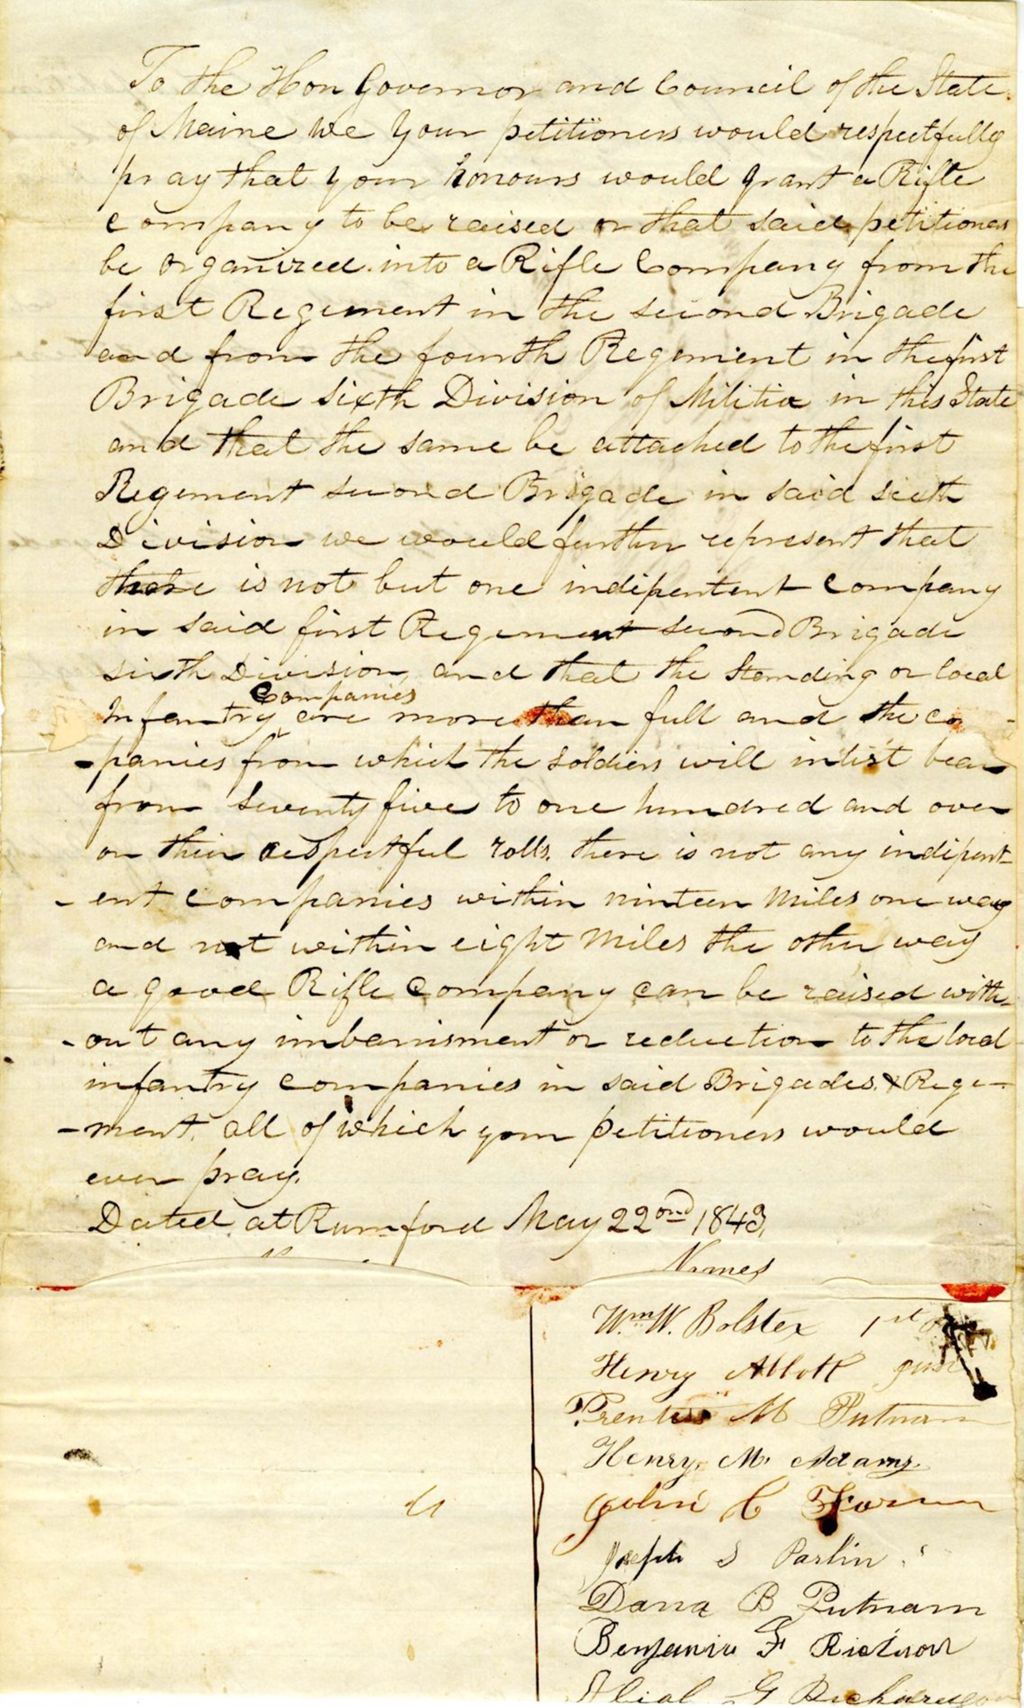 To the Hon Governor and Council of the State
of Maine We Your petitioners would respectfully
pray that your honours would grant a Rifle
company to be raised or that said petitioners
be organized into a Rifle Company from the
first Regement in the second Brigade
and from the fourth Regement in the first
Brigade sixth Division of Militia in this State
and that the same be attached to the first
Regement second Brigade in said sixth
Division we would further represent that
there is not but one indipentent company
in said first Regement second Brigade
sixth Division, and that the standing or local
Companies
Infantry are more than full and the com
-panies from which the soldiers will inlist bear
from seventy five to one hundred and over
on their respectful rolls. there is not any indipent-
-ent companies within ninteen Miles one way
and not within eight Miles the other way
a good Rifle Company can be raised with-
-out any imbarrisment or reduction to the local
infantry companies in said Brigades & Rege-
-ment. all of which your petitioners would
ever pray.
Dated at Rumford May 22ond 1843,
Names
Wm W. Bolster 1st
Henry Abbott
Prentiss M Putnam
Henry M. Adams.
John C
Joseph S Parlin
Dana B Putnam
Benjamin F
G Richardson